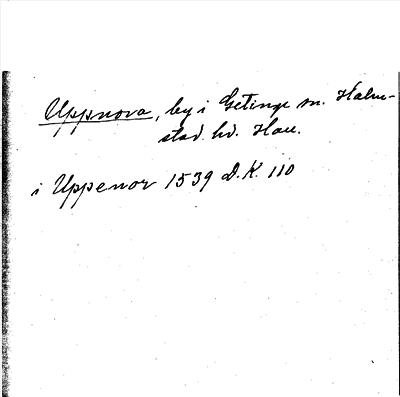 Uppnora, by i Getinge sn. Halm-
stad. hd. Hall.
i Uppenor 1539 D.K. 110